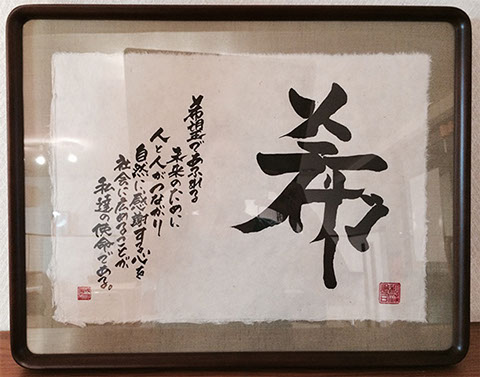 希
希望であふれる
未来のために
人と人がつながり
自然に感謝する心を
社会に広めることが
私達の使命である。